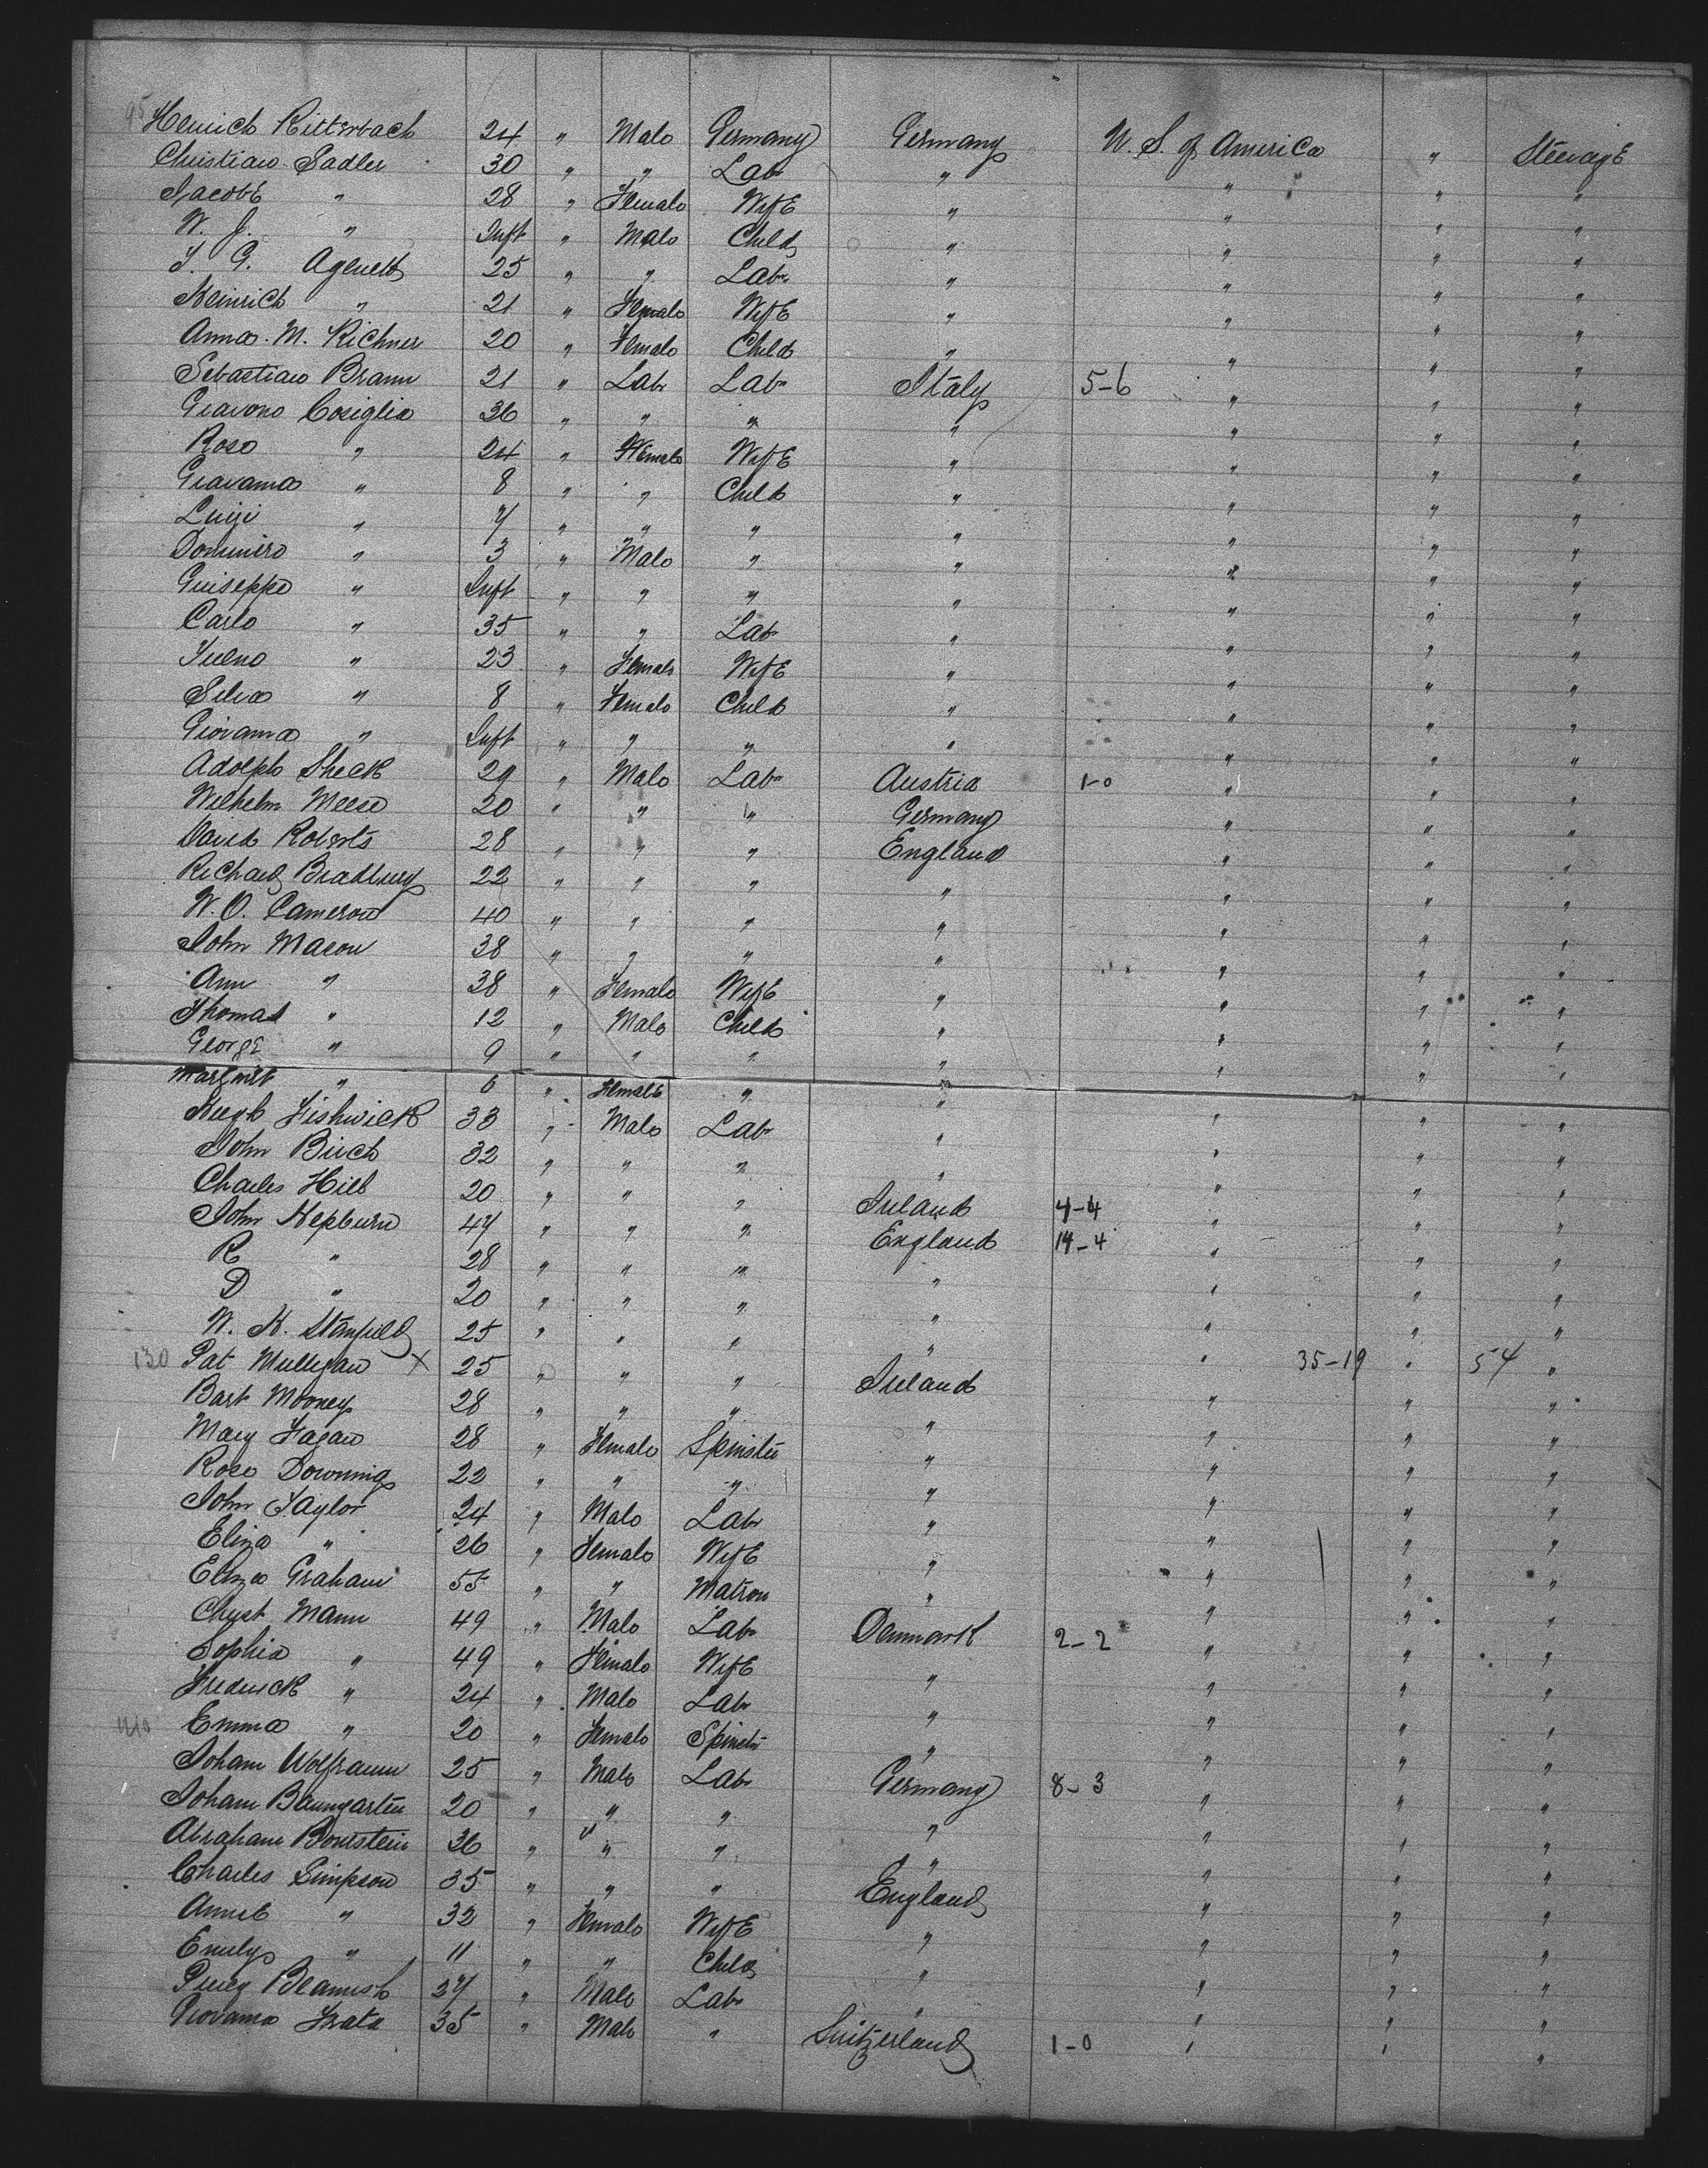 95 Heinrich Ritterbach 24 " Male Germany Germany U. S. of America " Steerage
Christian Sadler 30 " " Lab " " " "
Jacobe " 28 " Female Wife " " " "
W. J. " Inft " Male Child " " " "
J. G. Agenett 25 " " Lab " " " "
Heinrich " 21 " Female Wife " " " "
Anna. M. Kichner 20 " Female Child " " " "
Sebastian Braun 21 " Lab Lab Italy 5-6 " " "
Giavono Cosiglia 36 " " " " " " "
Rosa " 24 " Female Wife " " " "
Giavanna " 8 " " Child " " " "
Luigi " 7 " " " " " " "
Dominiro " 3 " Male " " " " "
Guiseppe " Inft " " " " " " "
Carlo " 35 " " Lab " " " "
" 23 " Female Wife " " " "
Silva " 8 " Female Child " " " "
Giovanna " Inft " " " " " " "
Adolph Sheck 29 " Male Lab Austria 1-0 " " "
Wilhelm Meese 20 " " " Germany " " "
David Roberts 28 " " " England " " "
Richard Bradbury 22 " " " " " " "
W. O. Cameron 40 " " " " " " "
John Mason 38 " " " " " " "
Ann " 38 " Female Wife " " " "
Thomas " 12 " Male Child " " " "
George " 9 " " " " " " "
Margaret " 6 " Female " " " " "
Hugh Fishwick 33 " Male Lab " " " "
John Birch 32 " " " " " " "
Charles Hill 20 " " " Ireland 4-4 " " "
John Hepburn 47 " " " England 14-4 " " "
R " 28 " " " " " " "
D " 20 " " " " " " "
W. H. Stanfield 25 " " " " " " "
130 Pat Mulligan X 25 " " " Ireland " 35-19 " 54 "
Bart Mooney 28 " " " " " " "
Mary Fagan 28 " Female Spinster " " " "
Rose Downing 22 " " " " " " "
John Taylor 24 " Male Lab " " " "
Eliza " 26 " Female Wife " " " "
Eliza Graham 55 " " Matron " " " "
Chyst Mann 49 " Male Lab Denmark 2-2 " " "
Sophia " 49 " Female Wife " " " "
Frederick " 24 " Male Lab " " " "
140 Emma " 20 " Female Spinster " " " "
Johann Wolframm 25 " Male Lab Germany 8-3 " " "
Johann Baumgarten 20 " " " " " " "
Abraham Bornstein 36 " " " " " " "
Charles Simpson 35 " " " England " " "
Annie " 32 " Female Wife " " " "
Emily " 11 " " Child " " " "
Percy Beamish 27 " Male Lab " " " "
Giovanna Frata 35 " Male " Switzerland 1-0 " " "